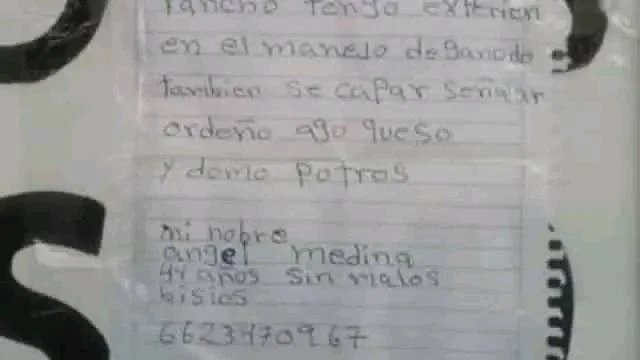 rancho tengo exterien
en el manejo deganado
tambien se capar señalar
ordeño ago queso
y domo potros
mi nobre
angel medina
44 años sin malos
bisios
6623470967